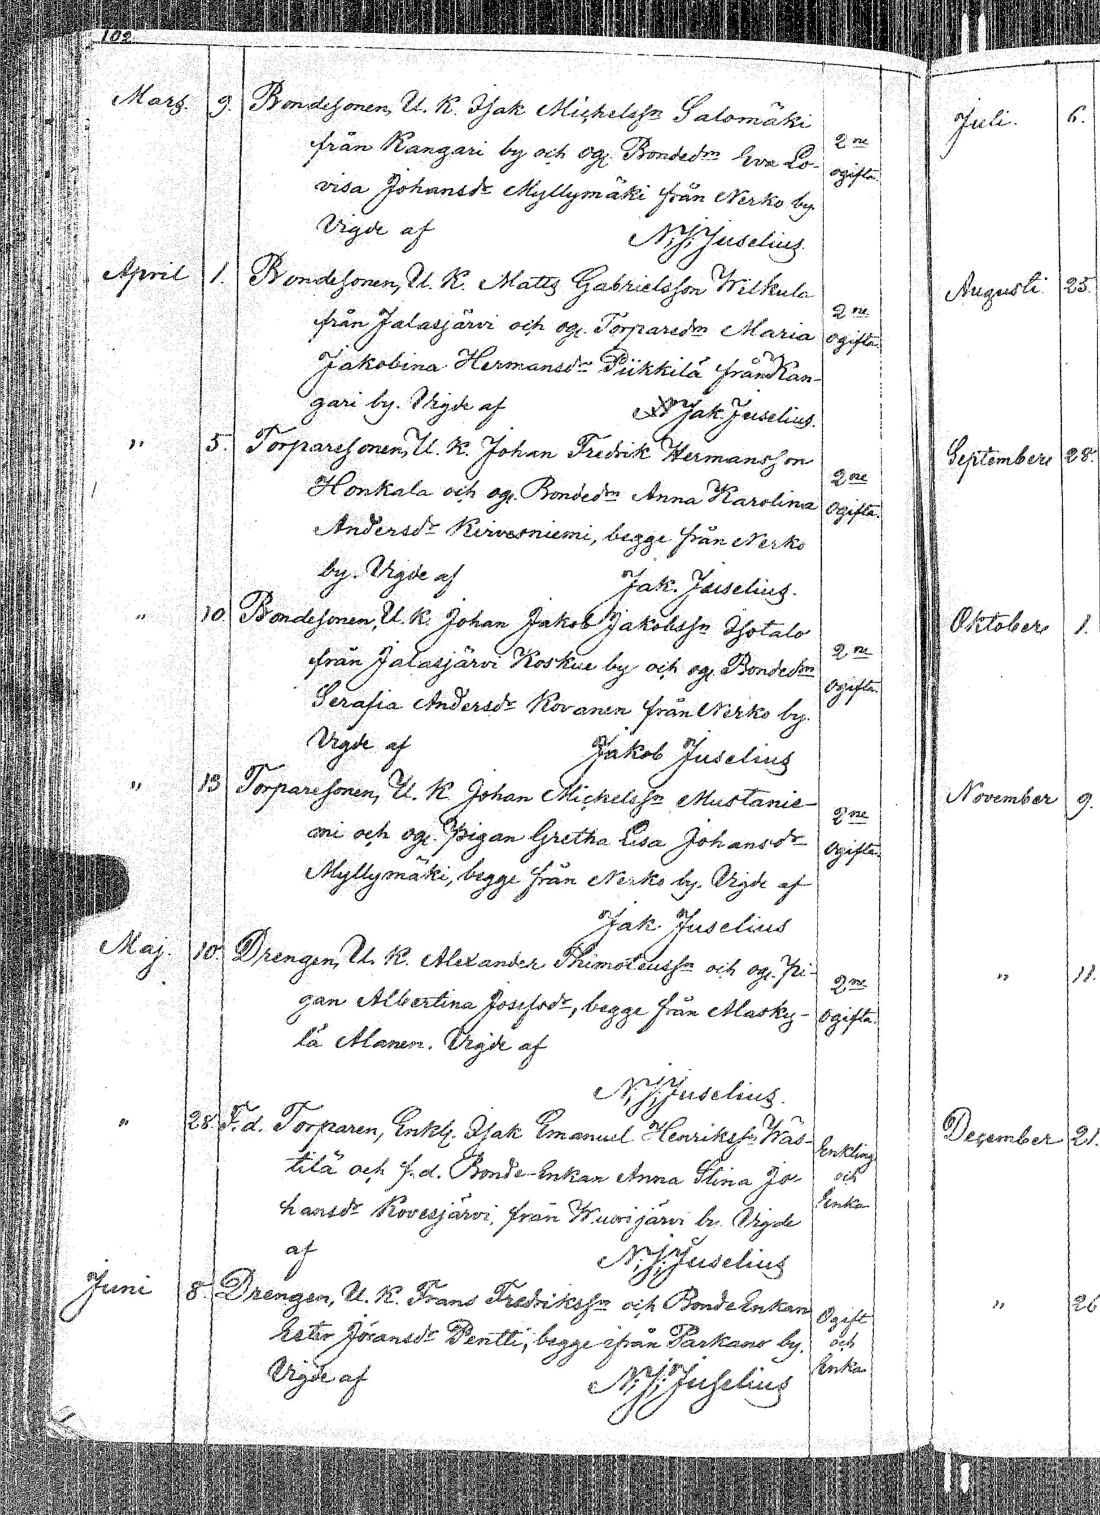 102
Mars. 9. Bondesonen, U. K. Isak Michelsson Salomäki
från Kangari by och og. Bondedm Eva Lo-
2ne
visa Johansdr Myllymäki från Nerko by.
ogifta.
Vigde af N. J. Juselius.
April 1. Bondesonen, U. K. Matts Gabrielsson Wilkula
från Jalasjärvi och og. Torparedm Maria
2ne
Jakobina Hermansdr Piikkilä från Kan-
ogifta.
gari by. Vigde af Jak. Juselius.
" 5. Torparesonen, U. K. Johan Fredrik Hermansson
Honkala och og. Bondedm Anna Karolina
2ne
Andersdr Kirvesniemi, begge från Nerko
ogifta.
by. Vigde af Jak. Juselius.
" 10. Bondesonen, U. K. Johan Jakob Jakobsson Isotalo
från Jalasjärvi Koskue by och og. Bondedm
2ne
Serafia Andersdr Kovanen från Nerko by.
ogifta.
Vigde af Jakob Juselius
" 13 Torparesonen, U. K. Johan Michelsson Mustanie-
mi och og. Pigan Gretha Lisa Johansdr
2ne
Myllymäki, begge från Nerko by. Vigde af
ogifta.
Jak. Juselius
Maj. 10. Drengen, U. K. Alexander Thimoteusson och og. Pi-
gan Albertina Josefsdr, begge från Alasky-
2ne
lä Alanen. Vigde af
ogifta.
N. J. Juselius.
" 28. F.d. Torparen, Enkl. Isak Emanuel Henriksson Wäs-
tilä och f.d. Bonde-Enkan Anna Stina Jo-
Enkling
hansdr Kovesjärvi, från Wuorijärvi by. Vigde
och
Enka
af N. J. Juselius
Juni 8. Drengen, U. K. Frans Fredriksson och Bonde Enkan
Ester Johansdr Pentti, begge ifrån Parkano by.
Ogift
och
Enka
Vigde af N. J. Juselius
Juli. 6.
Augusti 25.
September 28.
Oktober 1.
November 9.
" 11.
December 21.
" 26